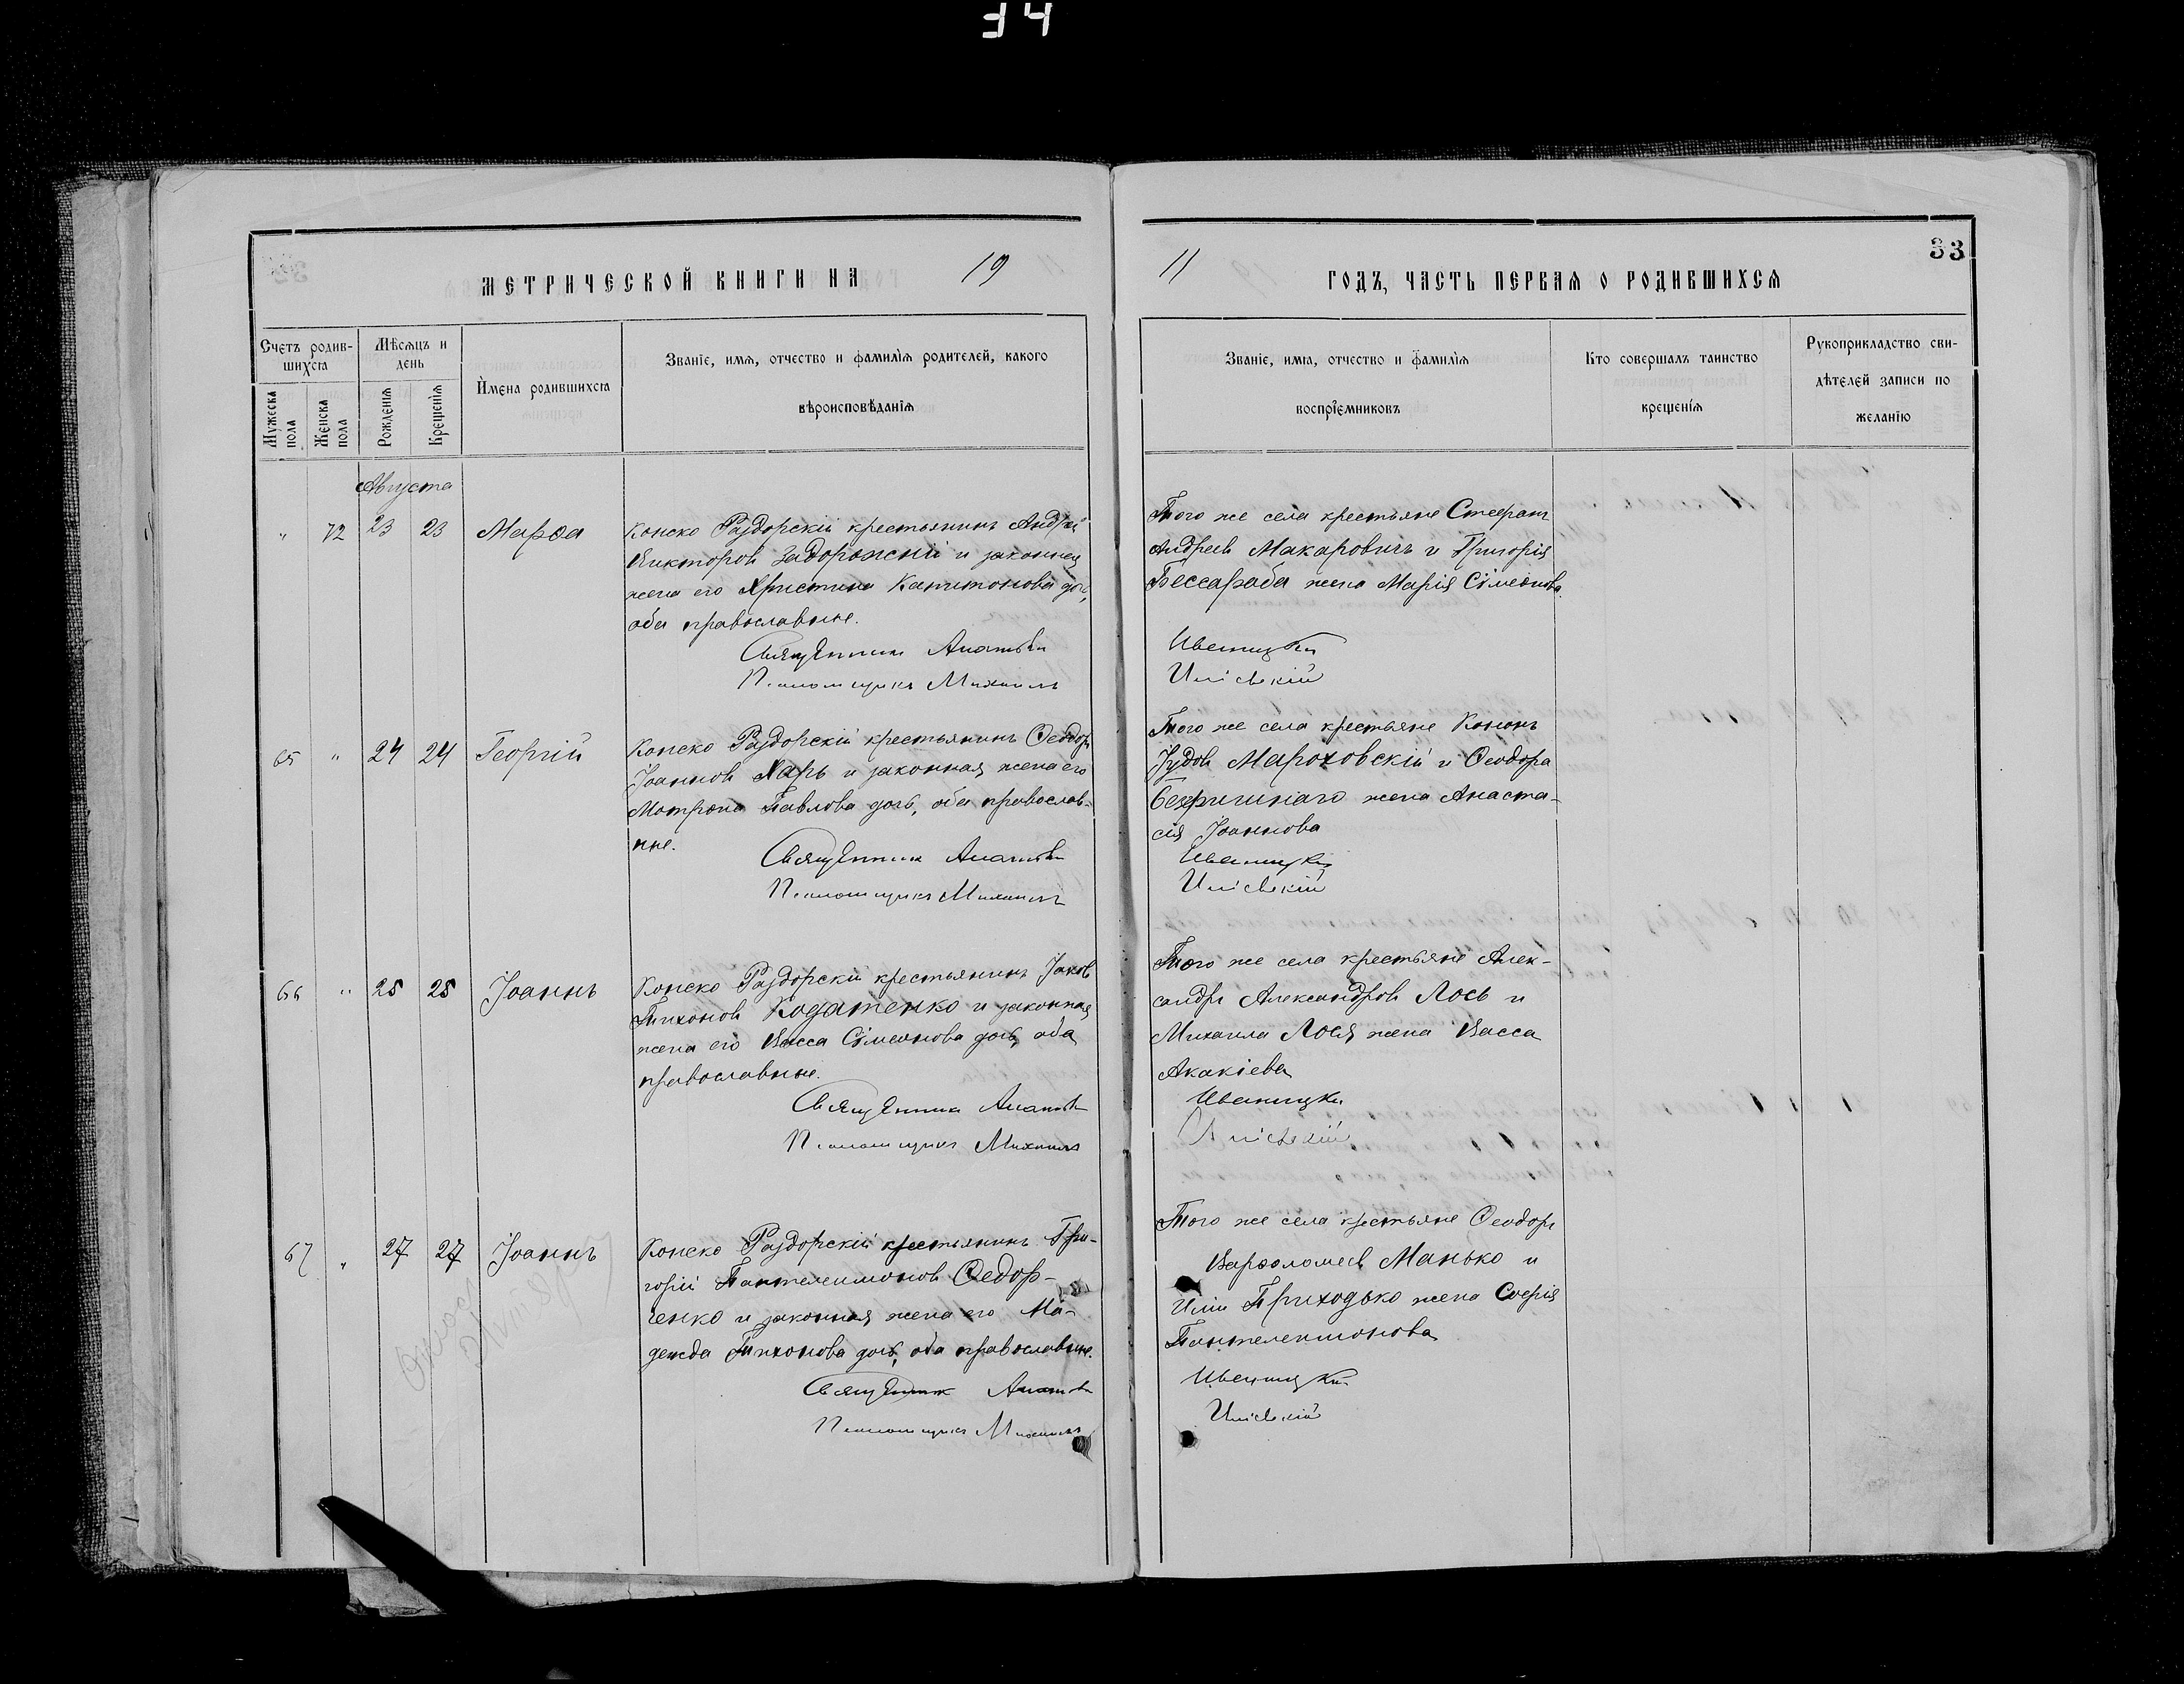 34
МЕТРИЧЕСКОЙ КНИГИ НА 19
11 ГОДЪ, ЧАСТЬ ПЕРВАЯ О РОДИВШИХСЯ
33
Счетъ родив-
шихся
Мужеска пола
Женска пола
Мѣсяцъ и
день
Рожденія
Крещенія
Имена родившихся
Званіе, имя, отчество и фамилія родителей, какого
вѣроисповѣданія
Званіе, имя, отчество и фамилія
воспріемниковъ
Кто совершалъ таинство
крещенія
Рукоприкладство сви-
дѣтелей записи по
желанію
Августа
" 72 23 23 Марѳа
Конско Раздорскій крестьянинъ Андрей
Викторовъ Задорожній и законная
жена его Христина Капитонова дочь,
оба православные.
Священникъ
Псаломщикъ Михаилъ
Того же села крестьяне Стефанъ
Андреевъ Макаровичъ и Григорія
Бессараба жена Марія Сѵмеонова.
Ивоницкій
65 " 24 24 Георгій
Конско Раздорскій крестьянинъ Ѳеодоръ
Іоанновъ Харь и законная жена его
Мотрона Павлова дочь, оба православ-
ные.
Священникъ
Псаломщикъ Михаилъ
Того же села крестьяне Кононъ
Іудовъ Мароховскій и Ѳеодора
жена Анаста-
сія Іоаннова
Ивоницкій
66 " 25 25 Іоаннъ
Конско Раздорскій крестьянинъ Іаковъ
Тихоновъ Кодатенко и законная
жена его Васса Сѵмеонова дочь, оба
православные.
Священникъ
Псаломщикъ Михаилъ
Того же села крестьяне Алек-
сандръ Александровъ Лось и
Михаила Лося жена Васса
Акакіева
Ивоницкій
67 " 27 27 Іоаннъ
Конско Раздорскій крестьянинъ Гри-
горій Пантелеимоновъ Ѳедор-
ченко и законная жена его На-
дежда Тихонова дочь, оба православные.
Священникъ
Псаломщикъ Михаилъ
Того же села крестьяне Ѳеодоръ
Варѳоломеевъ Манько и
Иліи Приходько жена Софія
Пантелеимонова
Ивоницкій